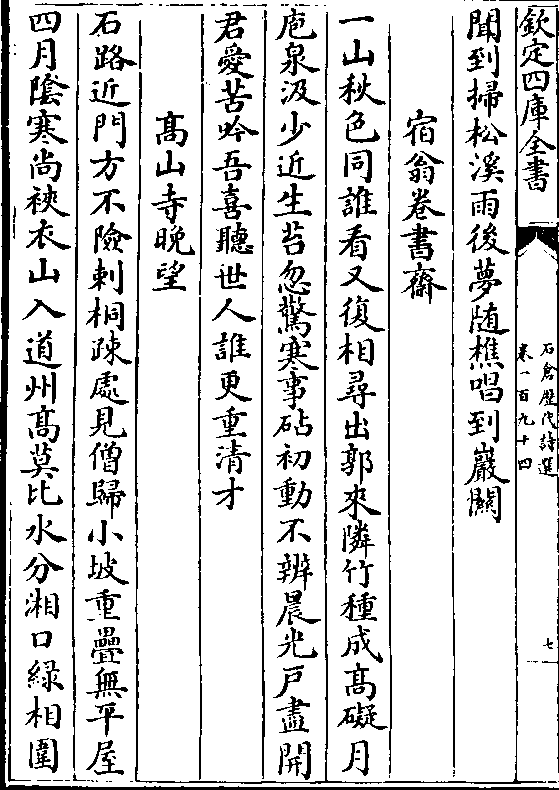 欽定四庫全書
石倉歷代詩選
卷一百九十四
七
聞到掃松溪雨後夢随樵唱到巖關
宿翁卷書齋
一山秋色同誰看又復相尋出郭來隣竹種成髙礙月
庖泉汲少近生苔忽驚寒事砧初動不辨晨光戸盡開
君愛苦吟吾喜聽世人誰更重清才
髙山寺晩望
石路近門方不險刺桐疎處見僧歸小坡重疊無平屋
四月陰寒尚裌衣山入道州髙莫比水分湘口緑相圍